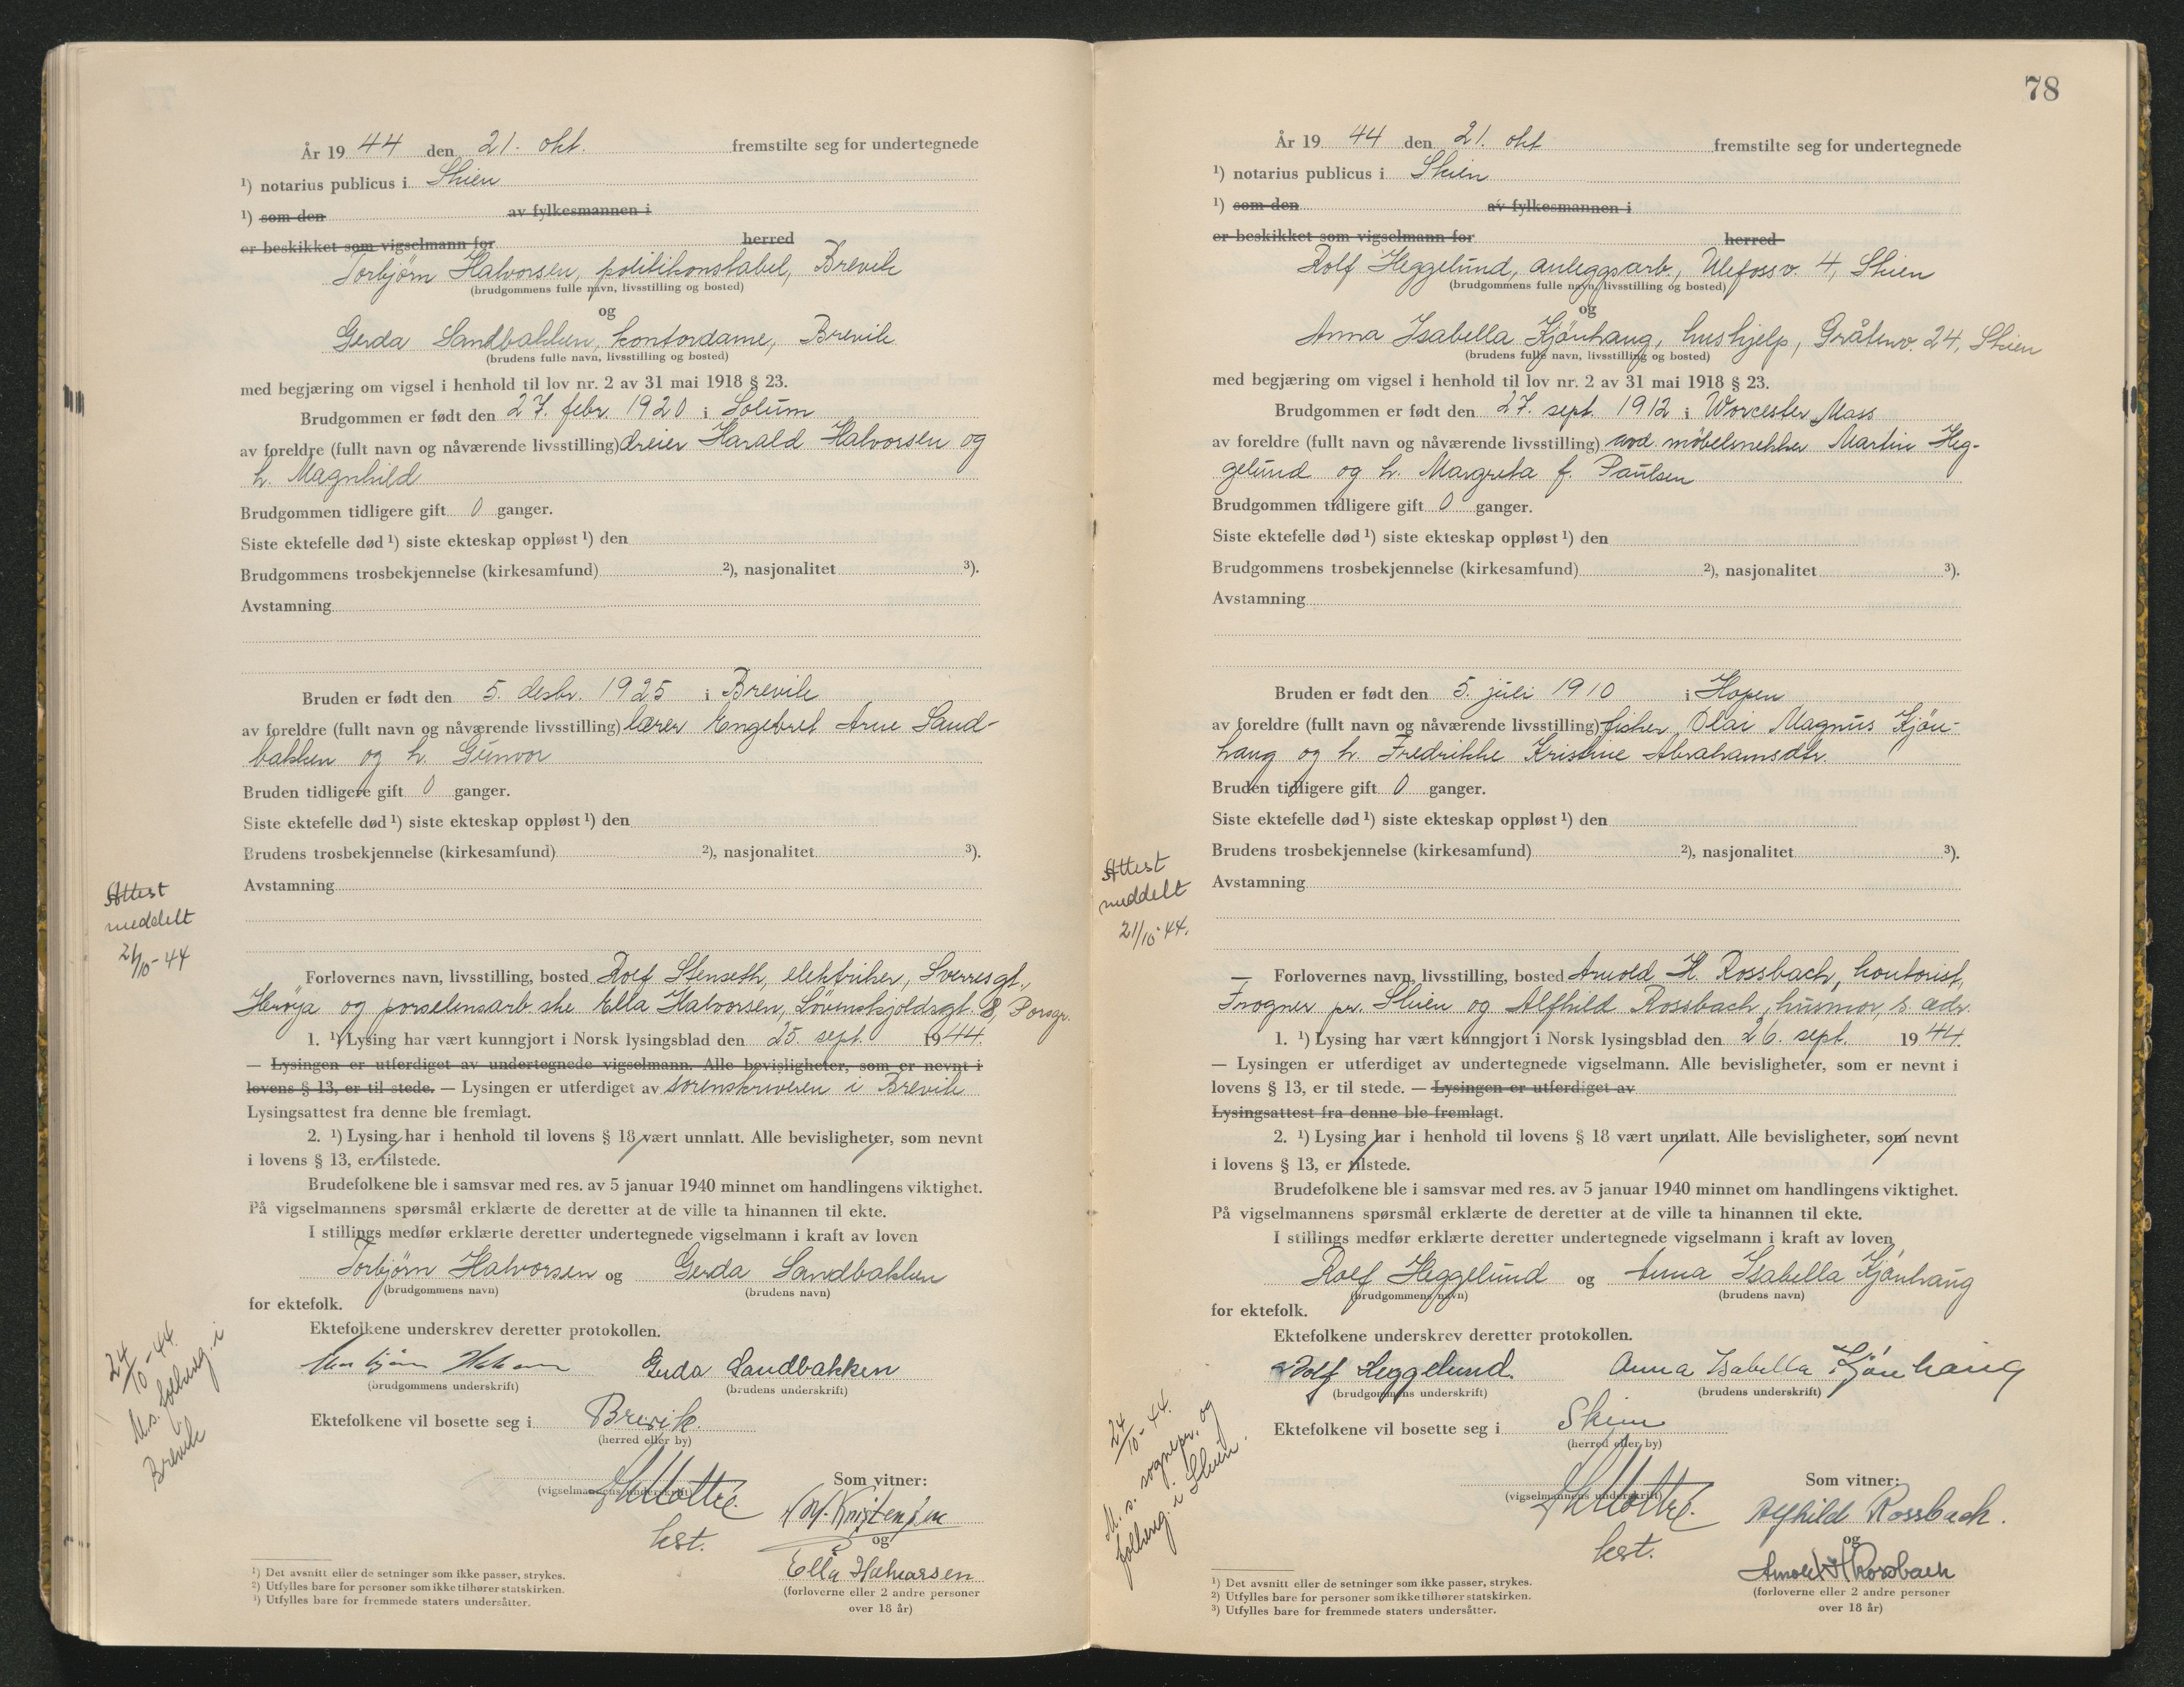 År 1944 den 21. okt. fremstilte seg for undertegnede
¹) notarius publicus i Skien
¹) som den av fylkesmannen i
er beskikket som vigselmann for herred
Torbjørn Halvorsen, politikonstabel, Brevik
(brudgommens fulle navn, livsstilling og bosted)
og
Gerda Sandbakken, kontordame, Brevik
(brudens fulle navn, livsstilling og bosted)
med begjæring om vigsel i henhold til lov nr. 2 av 31 mai 1918 § 23.
Brudgommen er født den 27. febr. 1920 i Solum
av foreldre (fullt navn og nåværende livsstilling) dreier Harald Halvorsen og
h. Magnhild
Brudgommen tidligere gift 0 ganger.
Siste ektefelle død ¹) siste ekteskap oppløst ¹) den
Brudgommens trosbekjennelse (kirkesamfund) ²), nasjonalitet ³).
Avstamning
Bruden er født den 5. desbr. 1925 i Brevik
av foreldre (fullt navn og nåværende livsstilling) lærer Engebret Arne Sand-
bakken og h. Gunvor
Bruden tidligere gift 0 ganger.
Siste ektefelle død ¹) siste ekteskap oppløst ¹) den
Brudens trosbekjennelse (kirkesamfund) ²), nasjonalitet ³).
Avstamning
Attest
meddelt
21/10-44
Forlovernes navn, livsstilling, bosted Rolf Stenseth, elektriker, Sverresgt.,
Herøya og porselensarb.ske Ella Halvorsen, Løvenskjoldsgt. 8, Porsgr.
1. ¹) Lysing har vært kunngjort i Norsk lysingsblad den 25. sept. 1944.
— Lysingen er utferdiget av undertegnede vigselmann. Alle bevisligheter, som er nevnt i
lovens § 13, er til stede. — Lysingen er utferdiget av sorenskriveren i Brevik
Lysingsattest fra denne ble fremlagt.
2. ¹) Lysing har i henhold til lovens § 18 vært unnlatt. Alle bevisligheter, som nevnt
i lovens § 13, er tilstede.
Brudefolkene ble i samsvar med res. av 5 januar 1940 minnet om handlingens viktighet.
På vigselmannens spørsmål erklærte de deretter at de ville ta hinannen til ekte.
I stillings medfør erklærte deretter undertegnede vigselmann i kraft av loven
Torbjørn Halvorsen og Gerda Sandbakken
(brudgommens navn) (brudens navn)
for ektefolk.
Ektefolkene underskrev deretter protokollen.
Gerda Sandbakken
(brudgommens underskrift) (brudens underskrift)
24/10-44.
M.s. folkereg. i
Brevik
Ektefolkene vil bosette seg i Brevik.
(herred eller by)
Som vitner:
(vigselmannens underskrift)
Kristensen
kst.
og
Ella Halvorsen
(forloverne eller 2 andre personer
over 18 år)
¹) Det avsnitt eller de setninger som ikke passer, strykes.
²) Utfylles bare for personer som ikke tilhører statskirken.
³) Utfylles bare for fremmede staters undersåtter.
78
År 1944 den 21. okt fremstilte seg for undertegnede
¹) notarius publicus i Skien
¹) som den av fylkesmannen i
er beskikket som vigselmann for herred
Rolf Heggelund, anleggsarb., Ulefossv. 4, Skien
(brudgommens fulle navn, livsstilling og bosted)
og
Anna Isabella Kjønhaug, hushjelp, Gråtenv. 24, Skien
(brudens fulle navn, livsstilling og bosted)
med begjæring om vigsel i henhold til lov nr. 2 av 31 mai 1918 § 23.
Brudgommen er født den 27. sept. 1912 i Worcester, Mass
av foreldre (fullt navn og nåværende livsstilling) avd. møbelsnekker Martin Heg-
gelund og h. Margreta f. Paulsen
Brudgommen tidligere gift 0 ganger.
Siste ektefelle død ¹) siste ekteskap oppløst ¹) den
Brudgommens trosbekjennelse (kirkesamfund) ²), nasjonalitet ³).
Avstamning
Bruden er født den 5. juli 1910 i Hopen
av foreldre (fullt navn og nåværende livsstilling) fisker Olai Magnus Kjøn-
haug og h. Fredrikke Kristine Abrahamsdtr.
Bruden tidligere gift 0 ganger.
Siste ektefelle død ¹) siste ekteskap oppløst ¹) den
Brudens trosbekjennelse (kirkesamfund) ²), nasjonalitet ³).
Avstamning
Attest
meddelt
21/10-44.
— Forlovernes navn, livsstilling, bosted Arnold H. Rossbach, kontorist,
Frogner pr. Skien og Alfhild Rossbach, husmor, s. adr.
1. ¹) Lysing har vært kunngjort i Norsk lysingsblad den 26. sept. 1944.
— Lysingen er utferdiget av undertegnede vigselmann. Alle bevisligheter, som er nevnt i
lovens § 13, er til stede. — Lysingen er utferdiget av
Lysingsattest fra denne ble fremlagt.
2. ¹) Lysing har i henhold til lovens § 18 vært unnlatt. Alle bevisligheter, som nevnt
i lovens § 13, er tilstede.
Brudefolkene ble i samsvar med res. av 5 januar 1940 minnet om handlingens viktighet.
På vigselmannens spørsmål erklærte de deretter at de ville ta hinannen til ekte.
I stillings medfør erklærte deretter undertegnede vigselmann i kraft av loven
Rolf Heggelund og Anna Isabella Kjønhaug
(brudgommens navn) (brudens navn)
for ektefolk.
Ektefolkene underskrev deretter protokollen.
Rolf Heggelund. Anna Isabella Kjønhaug
(brudgommens underskrift) (brudens underskrift)
24/10-44.
M. s. sognepr. og
folkereg. i Skien.
Ektefolkene vil bosette seg i Skien
(herred eller by)
Som vitner:
(vigselmannens underskrift)
Alfhild Rossbach.
kst.
og
Arnold H Rossbach
(forloverne eller 2 andre personer
over 18 år)
¹) Det avsnitt eller de setninger som ikke passer, strykes.
²) Utfylles bare for personer som ikke tilhører statskirken.
³) Utfylles bare for fremmede staters undersåtter.